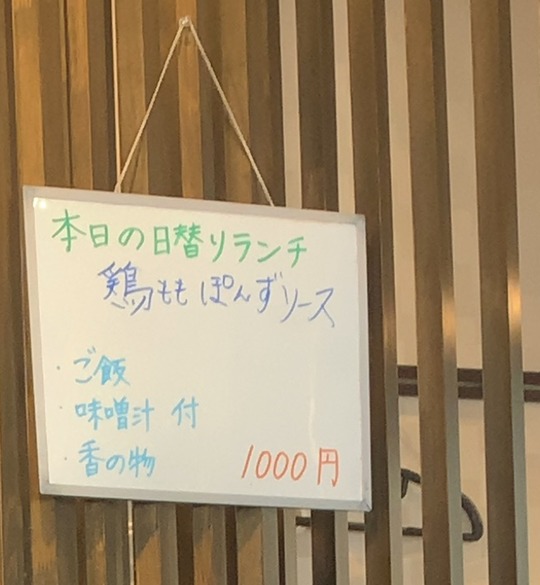 本日の日替りランチ
鶏もも ぽんずソース
・ご飯
・味噌汁 付
・香の物
1000円